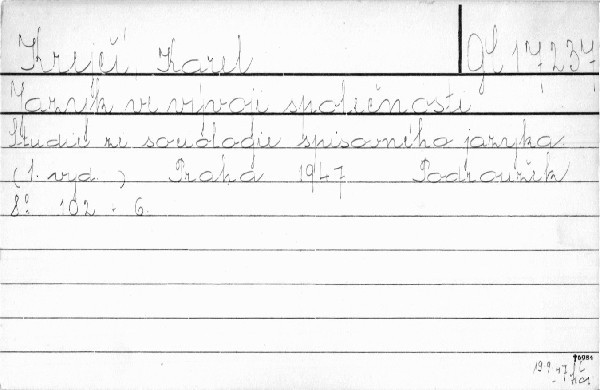 Krejčí Karel Gl 17.237
Jazyk ve vývoji společnosti
Studie ze sociologie spisovného jazyka
(1. vyd. ) Praha 1947 Podroužek
8° 102 - 6.
19.9.47